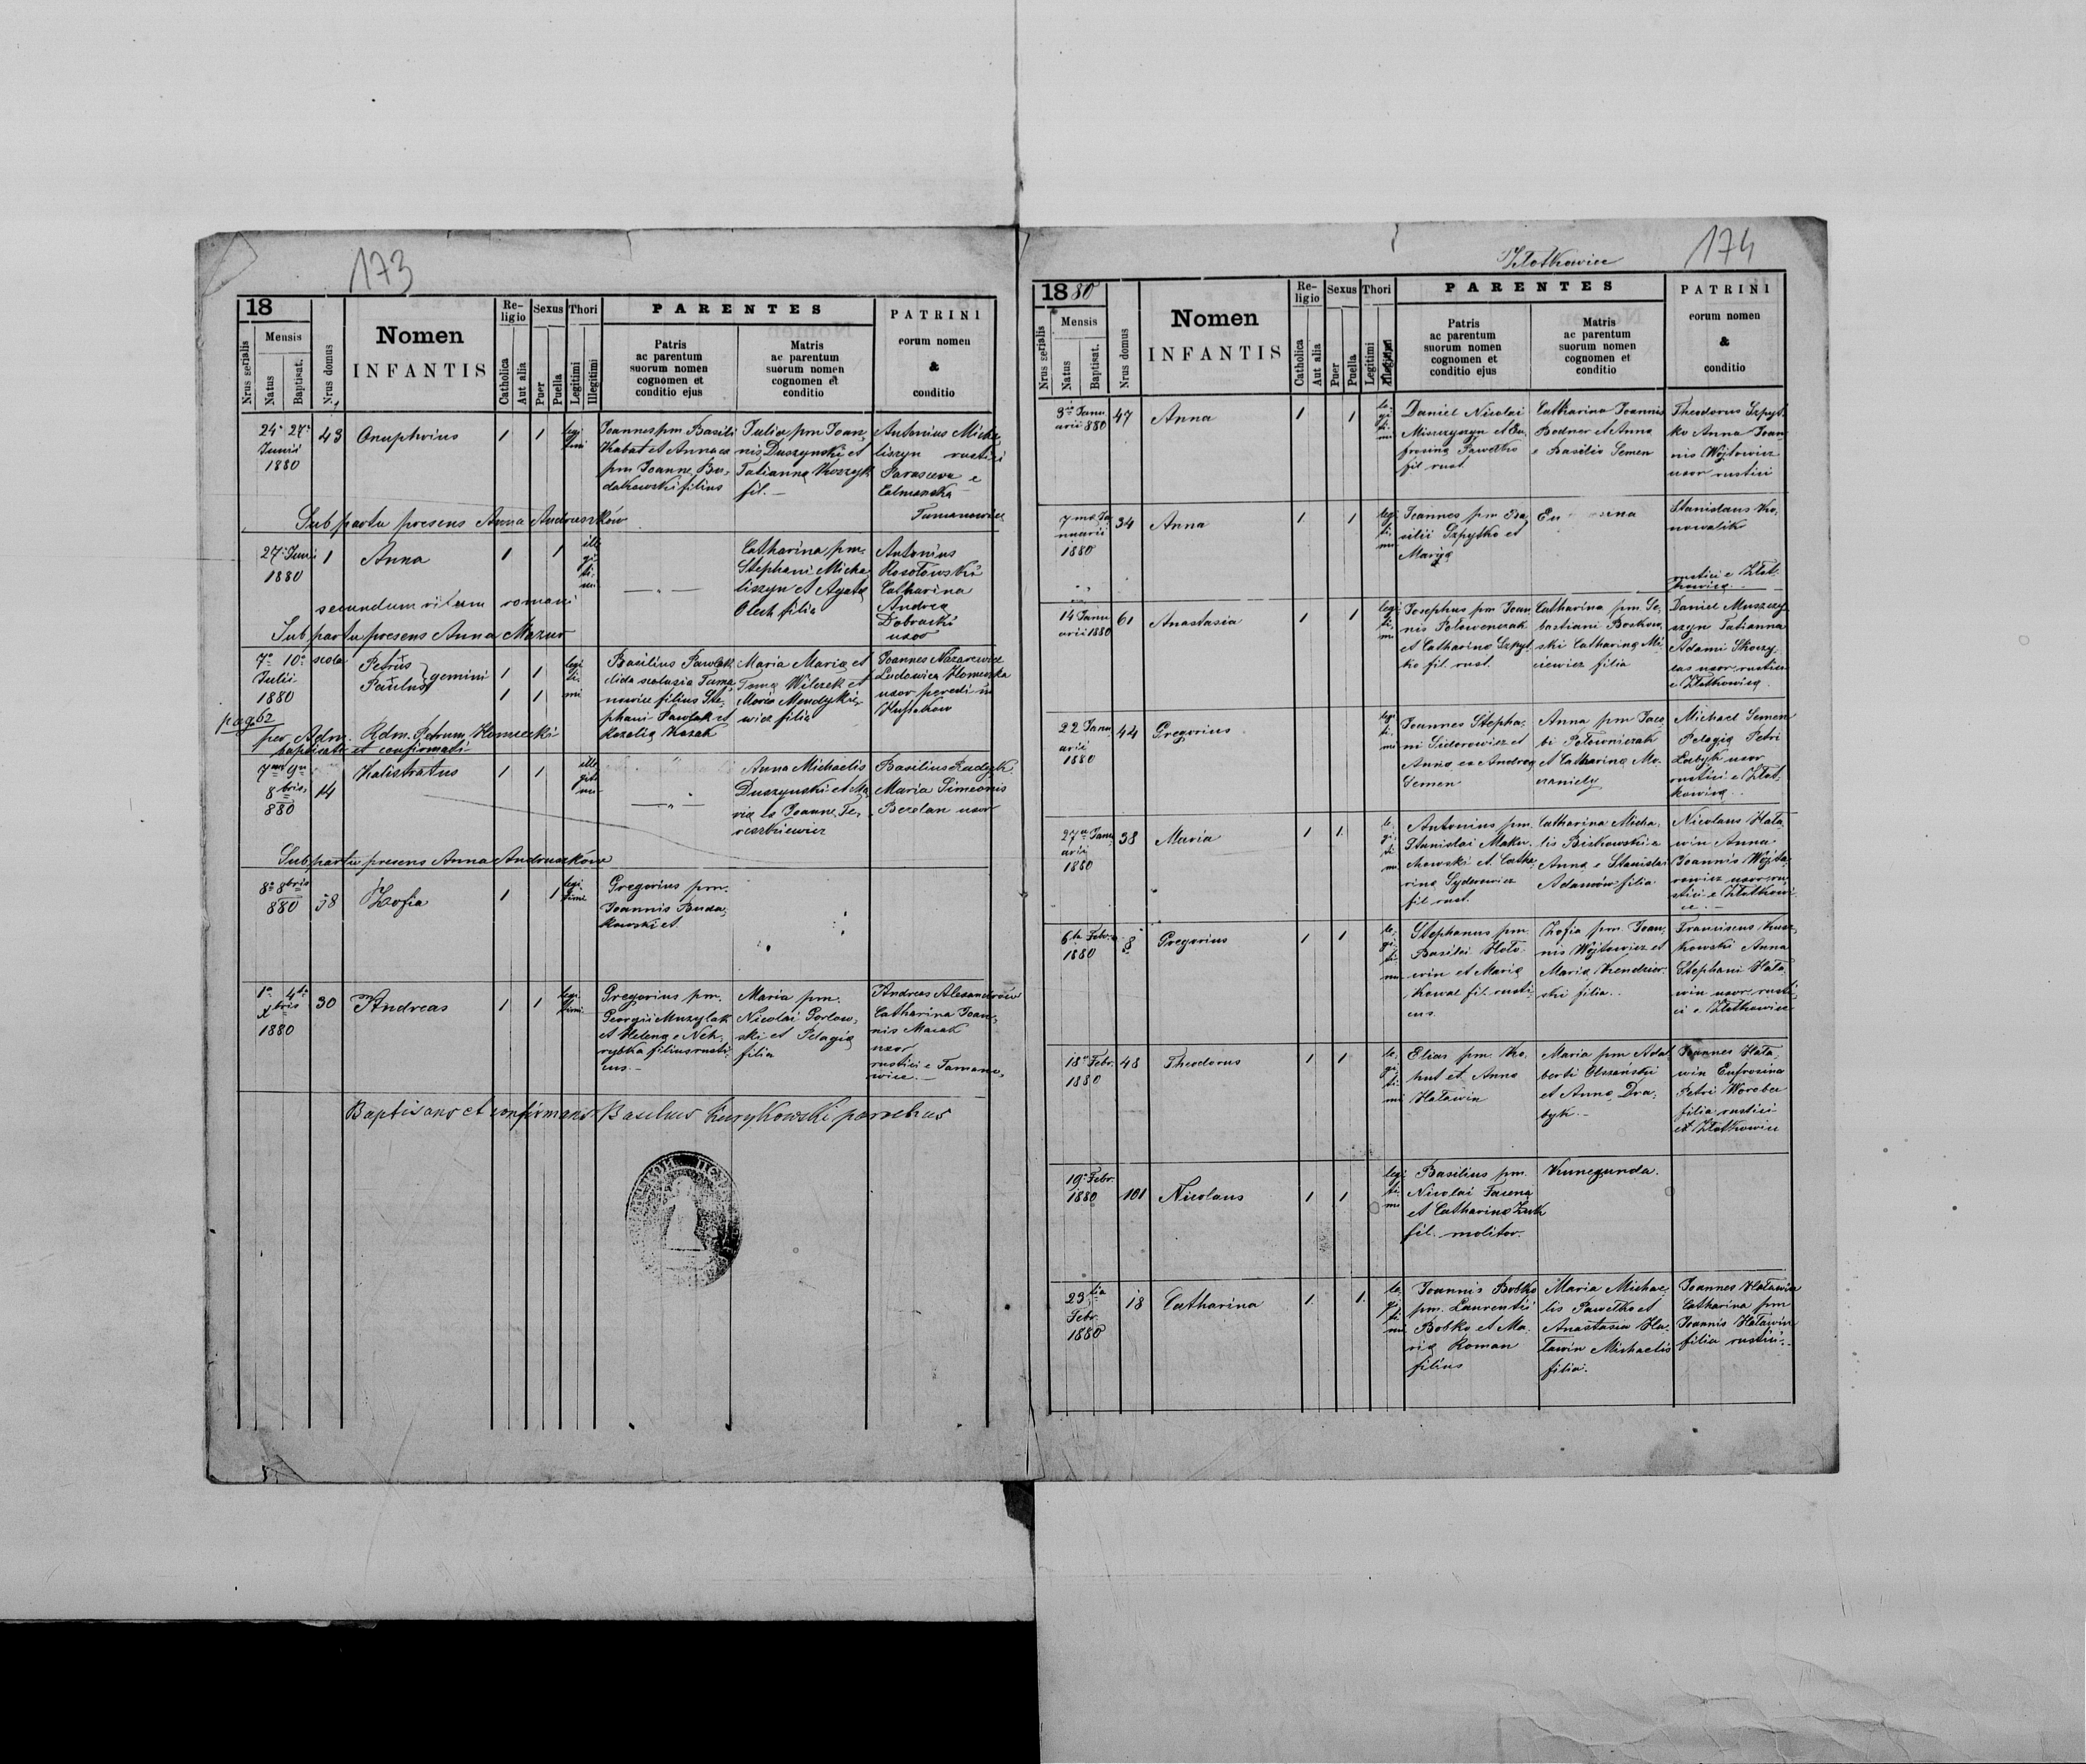 173
18
Nrus serialis
Mensis
Natus
Baptisat.
Nrus domus
Nomen
INFANTIS
Re-
ligio
Catholica
Aut alia
Sexus
Puer
Puella
Thori
Legitimi
Illegitimi
PARENTES
Patris
ac parentum
suorum nomen
cognomen et
conditio ejus
Matris
ac parentum
suorum nomen
cognomen et
conditio
PATRINI
eorum nomen
&
conditio
24 27
Junii
1880
43
Onuphrius
1
1
legi
timi
Joannes pm. Basili
Kabat et Anna ex
pm Joanne Bu-
dakowski filius
Julia pm Joan-
nis Duszynski et
Tatianna Koszyk
fil.
Antonius Micha
liszyn rustici
Parasceva e
Calmanska
Tamanowice
Sub partu presens Anna Andruszków
27 Junii
1880
1
Anna
1
1
ille
gi
ti
mi
Catharina pm.
Stephani Micha
liszyn et Agata
Olech filia
Antonius
Rosołowski
Catharina
Andrea
Dobracki
uxor
secundum ritum romani
Sub partu presens Anna Mazur
7 10
Julii
1880
scola
Petrus
Paulus
gemini
1 1
1 1
legi
ti
mi
Basilius Pawlak
dida scalusia Tama
nowice filius Ste-
phani Pawlak et
Rozalia Kozak
Maria Maria et
Toma Wilczek et
Maria Mendykie-
wicz filia
Joannes Nazarewicz
Ludovica Homecka
uxor paredi in
Hussakow
pag 62
per Adm. Rdm. Petrum Homecki
baptisati et confirmati
7 9
8bris
880
14
Kalistratus
1
1
ille
giti
mi
Anna Michaelis
Duszynski et Ma-
ria Joanne Te-
reszkiewicz
Basilius Ładyk
Maria Simeonis
Bezdan uxor
Sub partu presens Anna Andruszków
8 8bris
880
58
Zofia
1
1
legi
timi
Gregorius pm.
Joannis Buda-
kowski et
1 4
Xbris
1880
30
Andreas
1
1
legi
timi
Gregorius pm.
Georgii Muzylak
et Helena e Neh-
rybka filius rusti
cus.
Maria pm.
Nicolai Porlow-
ski et Pelagia
filia
Andreas Alexandrów
Catharina Joan-
nis Macak
uxor
rustici e Tamano-
wice.
Baptisans et confirmans Basilius Kurykowski parochus
Złotkowice
174
1880
Nrus serialis
Mensis
Natus
Baptisat.
Nrus domus
Nomen
INFANTIS
Re-
ligio
Catholica
Aut alia
Sexus
Puer
Puella
Thori
Legitimi
Illegitimi
PARENTES
Patris
ac parentum
suorum nomen
cognomen et
conditio ejus
Matris
ac parentum
suorum nomen
cognomen et
conditio
PATRINI
eorum nomen
&
conditio
3 Janu
arii 880
47
Anna
1
1
le
gi
ti
mi
Daniel Nicolai
Miszczyszyn et Eu
frosina Pawełko
fil rust.
Catharina Joannis
Bodner et Anna
e Basilio Semen
Theodorus Szpyt
ko Anna Joan
nis Wojtowicz
uxor rustici
7 Ja
nuarii
1880
34
Anna
1
1
legi
ti
mi
Joannes pm Ba
silii Szpytko et
Marya
Stanislaus Ko-
nowalik
rustici e Złot
kowice
14 Janu
arii 1880
61
Anastasia
1
1
legi
ti
mi
Josephus pm Joan
nis Połowenczak
et Catharina Szpyt
ko fil. rust.
Catharina pm. Se-
bastiani Boskow-
ski Catharina Mi-
ciewicz filia
Daniel Muszczy
szyn Tatianna
Adami Skoczy-
las uxor rustici
e Złotkowice
22 Janu
arii
1880
44
Gregorius
legi
ti
mi
Joannes Stepha-
ni Sidorowicz et
Anna ex Andrea
Semen
Anna pm Jaco
bi Połowniczak
et Catharina Mo-
Michael Semen
Pelagia Petri
Łabyk uxor
rustici e Złot-
kowice
27 Janu
arii
1880
38
Maria
1
1
le
gi
ti
mi
Antonius pm.
Stanislai Maku-
chowski et Catha-
rina Syderowicz
fil rust.
Catharina Micha-
lis Biskowski e
Anna e Stanislai
Adamów filia
Nicolaus Hała
win Anna
Joannis Wojta-
rowicz uxor ru-
stici e Złotkowi
ce.
6 Febr.
1880
8
Gregorius
1
1
le
gi
ti
mi
Stephanus pm.
Basilii Hała
win et Maria
Kowal fil. rusti
cus
Zofia pm. Joan-
nis Wojtowicz et
Maria Kendzier-
ski filia.
Franciscus Kusz
kowski Anna
Stephani Hała
win uxor rusti-
ci e Złotkowice
18 Febr.
1880
48
Theodorus
1
1
le
gi
ti
mi
Elias pm. Ko-
hut et Anna
Haławin
Maria pm Adal
berti Olszański
et Anna Dra-
byk.
Joannes Hała-
win Eufrosina
Petri Worobec
filia rustici
et Złotkowice
19 Febr.
1880
101
Nicolaus
1
1
legi
ti
mi
Basilius pm.
Nicolai
et Catharina
fil. molitor.
Kunegunda.
23
Febr.
1880
18
Catharina
1
1
le
gi
ti
mi
Joannis Bobko
pm. Laurentii
Bobko et Ma-
ria Roman
filius
Maria Michae-
lis Pawełko et
Anastasia Ha-
ławin Michaelis
filia.
Joannes Haławin
Catharina pm
Joannis Haławin
filia rustici.